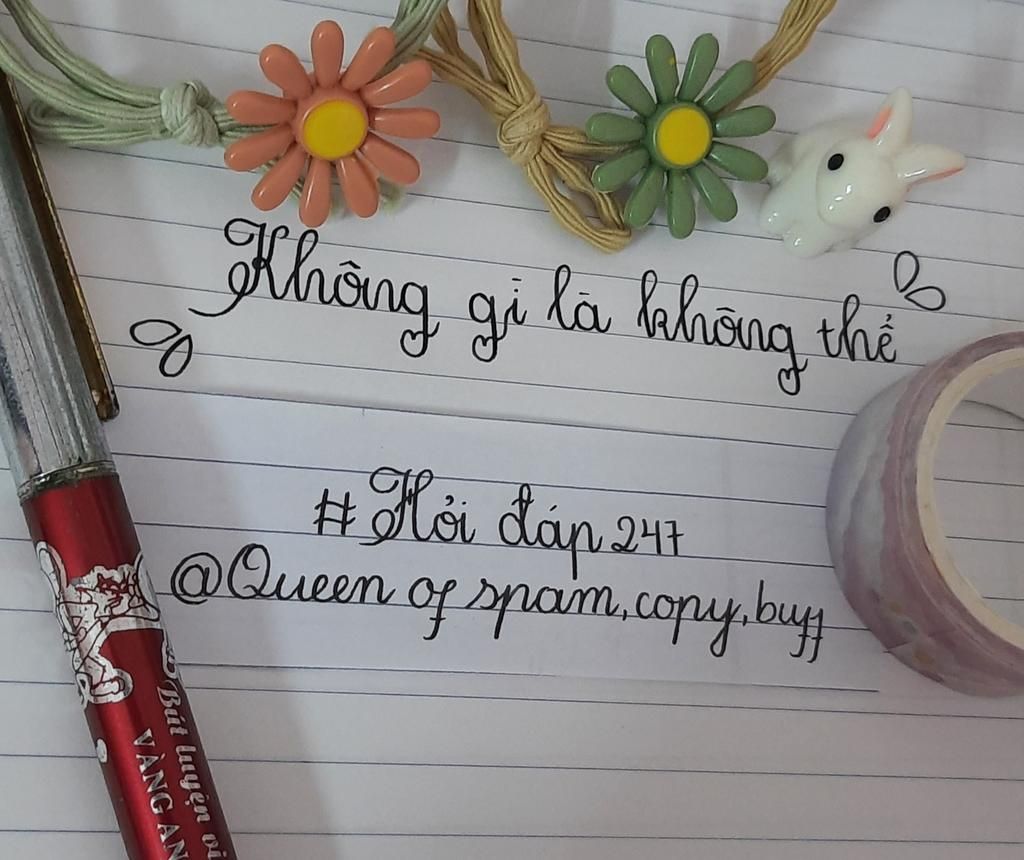 Không gì là không thể
#Hỏi đáp 247
@Queen of spam, copy, buff
Bút luyện vi
VÀNG AN